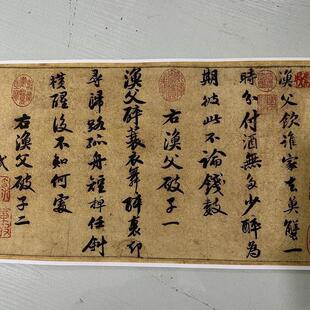 漁父飲誰家去魚蟹一
時分付酒無多少醉為
期彼此不論錢數
右漁父破子一
漁父醉蓑衣舞醉裏却
尋歸路孤舟短棹任斜
橫醒後不知何處
右漁父破子二